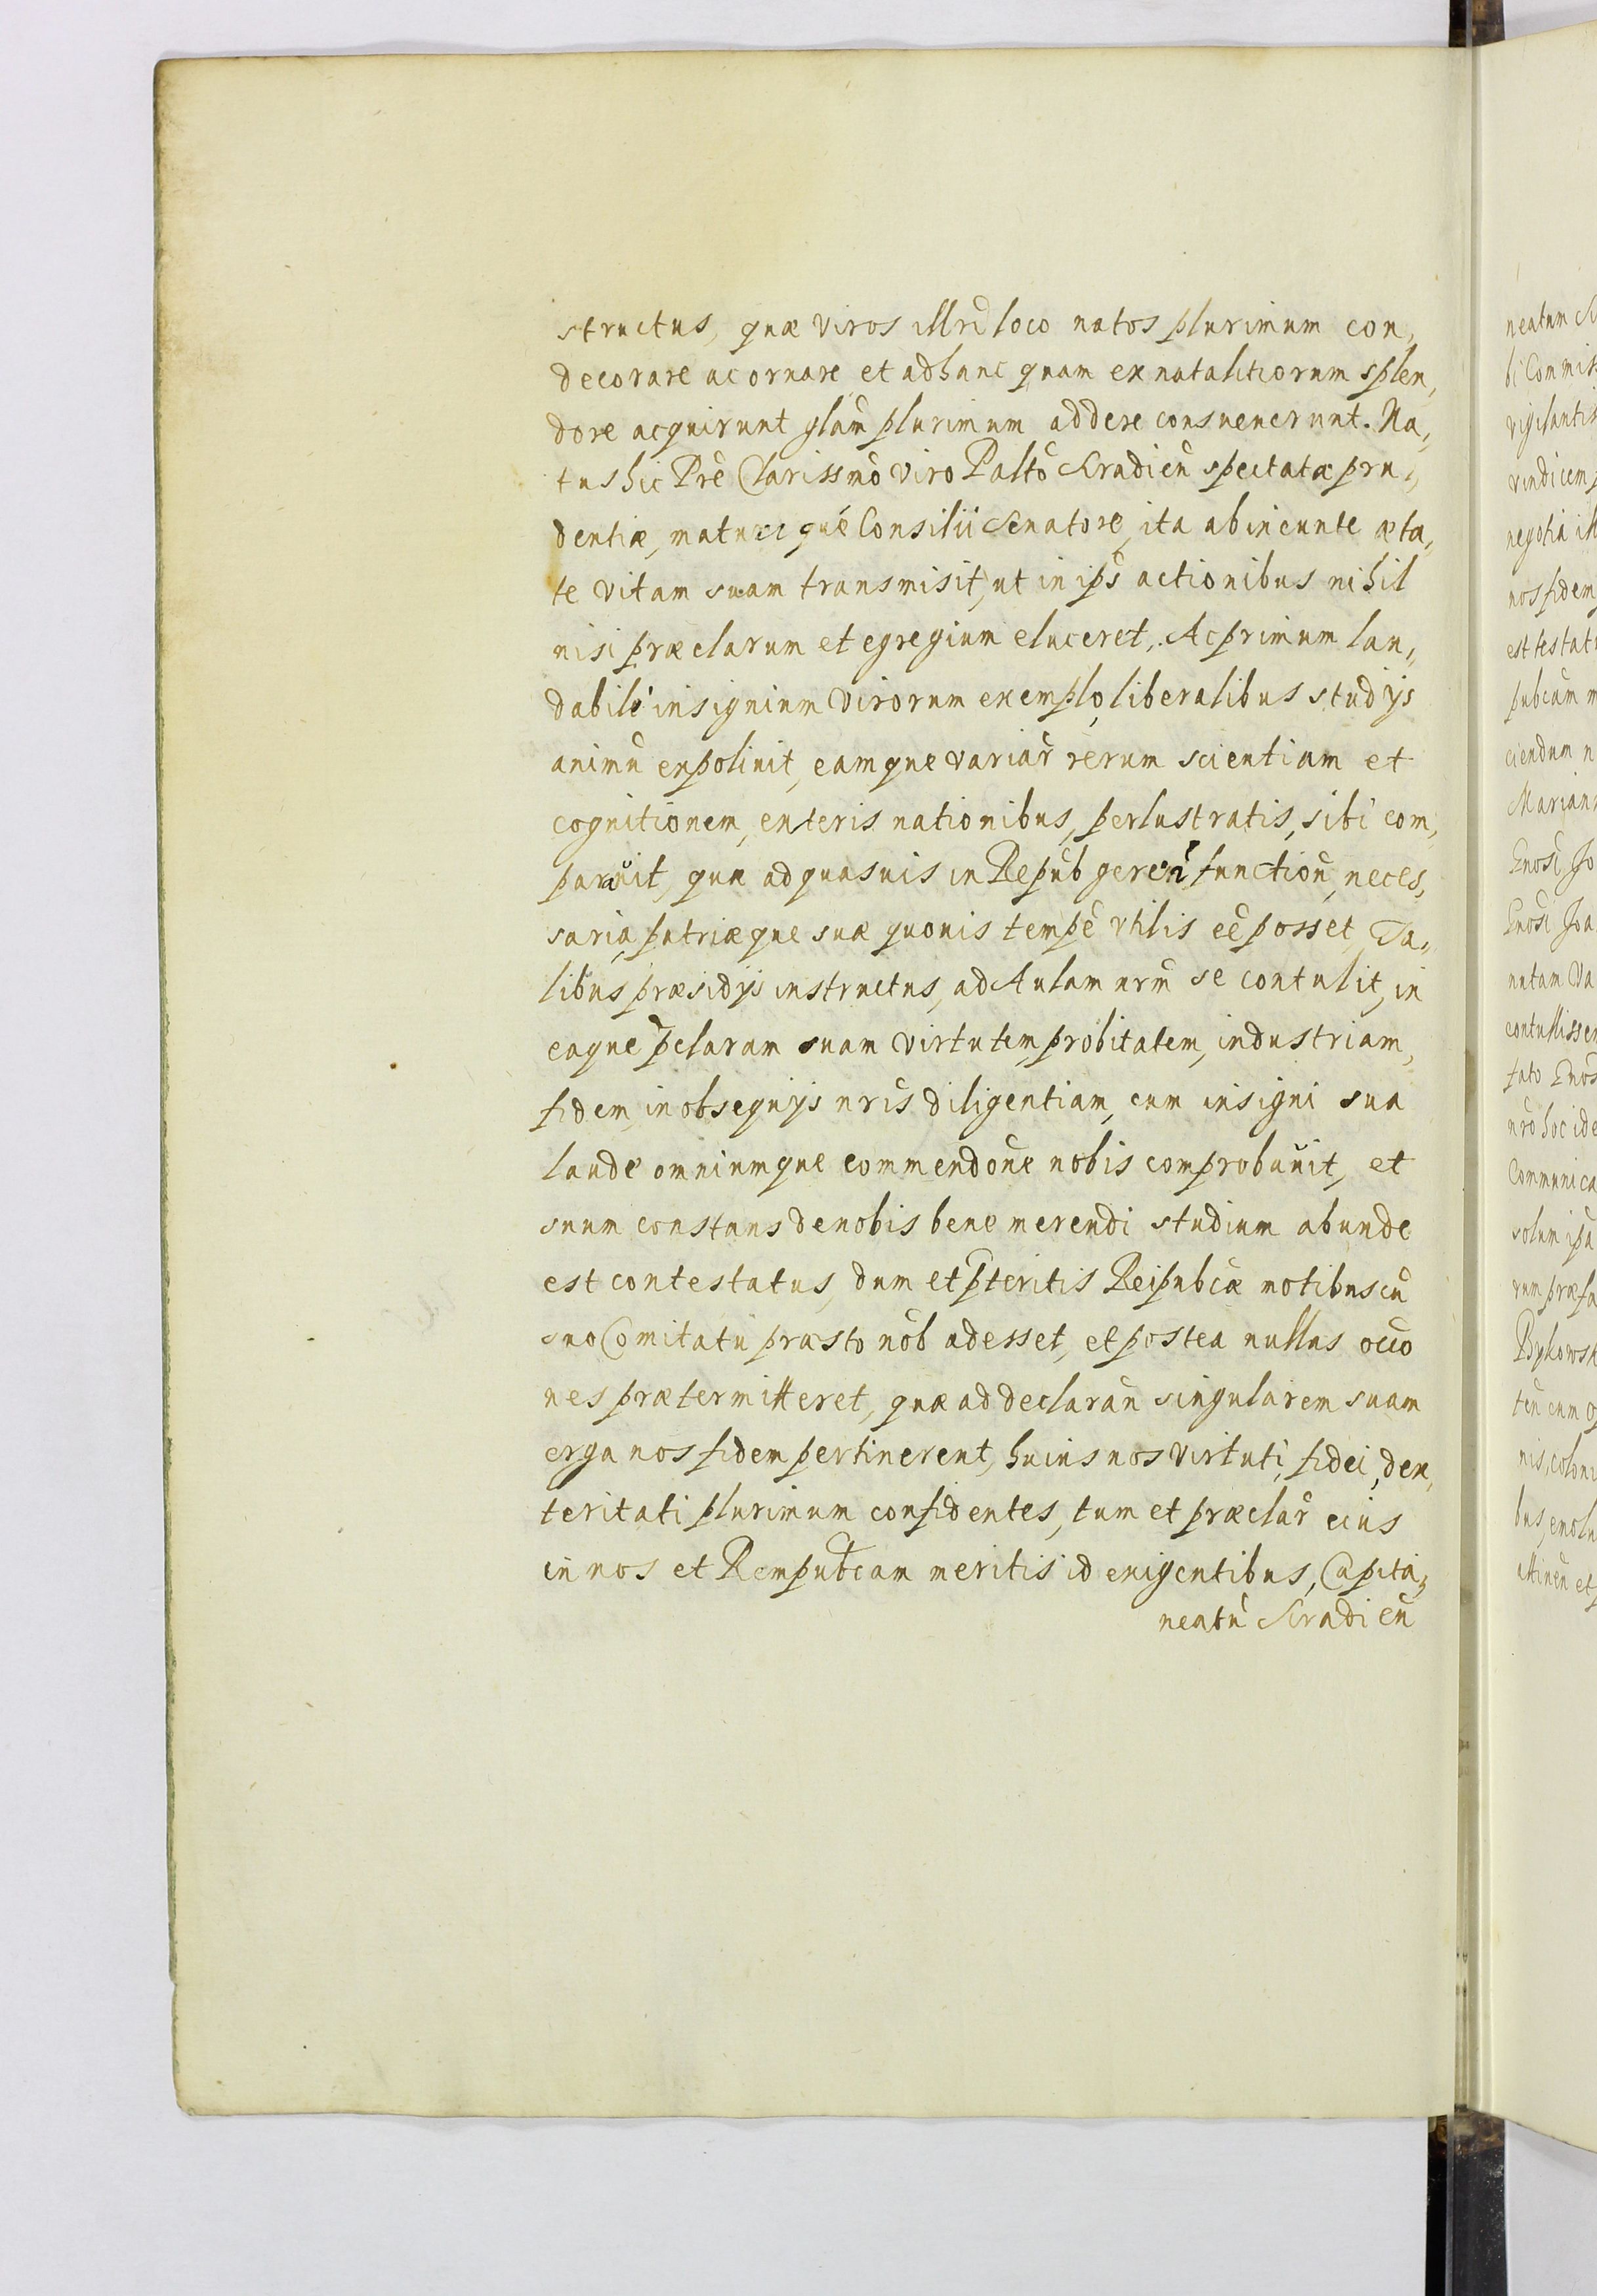 structus, quæ viros illri loco natos plurimum con,
decorare ac ornare et ad hanc quam ex natalitiorum splen,
dore acquirunt glãm plurimum addere consueuerunt. Na,
tus hic Prẽ Clarissmõ viro Paltõ Siradieñ spectatæ pru,
dentiæ, maturi qué Consilii Senatore, ita ab ineunte æta,
te vitam suam transmisit, ut in ips̃ actionibus nihil
nisi præclarum et egregium eluceret. Ac primum lau,
dabili insignium virorum exemplo, liberalibus studijs
animũ expoliuit, eamque variar̃ rerum scientiam et
cognitionem, exteris nationibus, perlustratis, sibi com,
parauit, quæ ad quasuis in Repub̃ gereñ functioñ, neces,
saria, patriæque suæ quouis tempẽ vtilis eẽ posset, Ta,
libus præsidijs instructus, ad Aulam nrm̃ se contulit, in
eaque p̃claram suam virtutem, probitatem, industriam,
fidem, in obsequijs nris̃ diligentiam, cum insigni sua
laude omniumque commendoñe nobis comprobauit, et
suum constans de nobis bene merendi studium abunde
est contestatus, dum et p̃teritis Reipubcæ motibus cũ
suo Comitatu præsto nob̃ adesset, et postea nullas occõ
nes prætermitteret, quæ ad declarañ singularem suam
erga nos fidem pertinerent, huius nos virtuti, fidei, dex,
teritati plurimum confidentes, tum et præclar̃ eius
in nos et Rempubcam meritis id exigentibus, Capita,
neatũ Siradieñ
neatum Si
bi Commis
vigilantis
vindicem p
negotia ill
nos fidem
est testat
pubcam m
ciendum n
Mariann
Gnosi Jo
Gnosi Joa
nutam Va
contulisse
fato Gnos
nrõ hoc ide
Communica
solum ipsa
rum præfa
Bykowsk
teñ cum o
nis, coloni
bus, emolu
ttineñ et